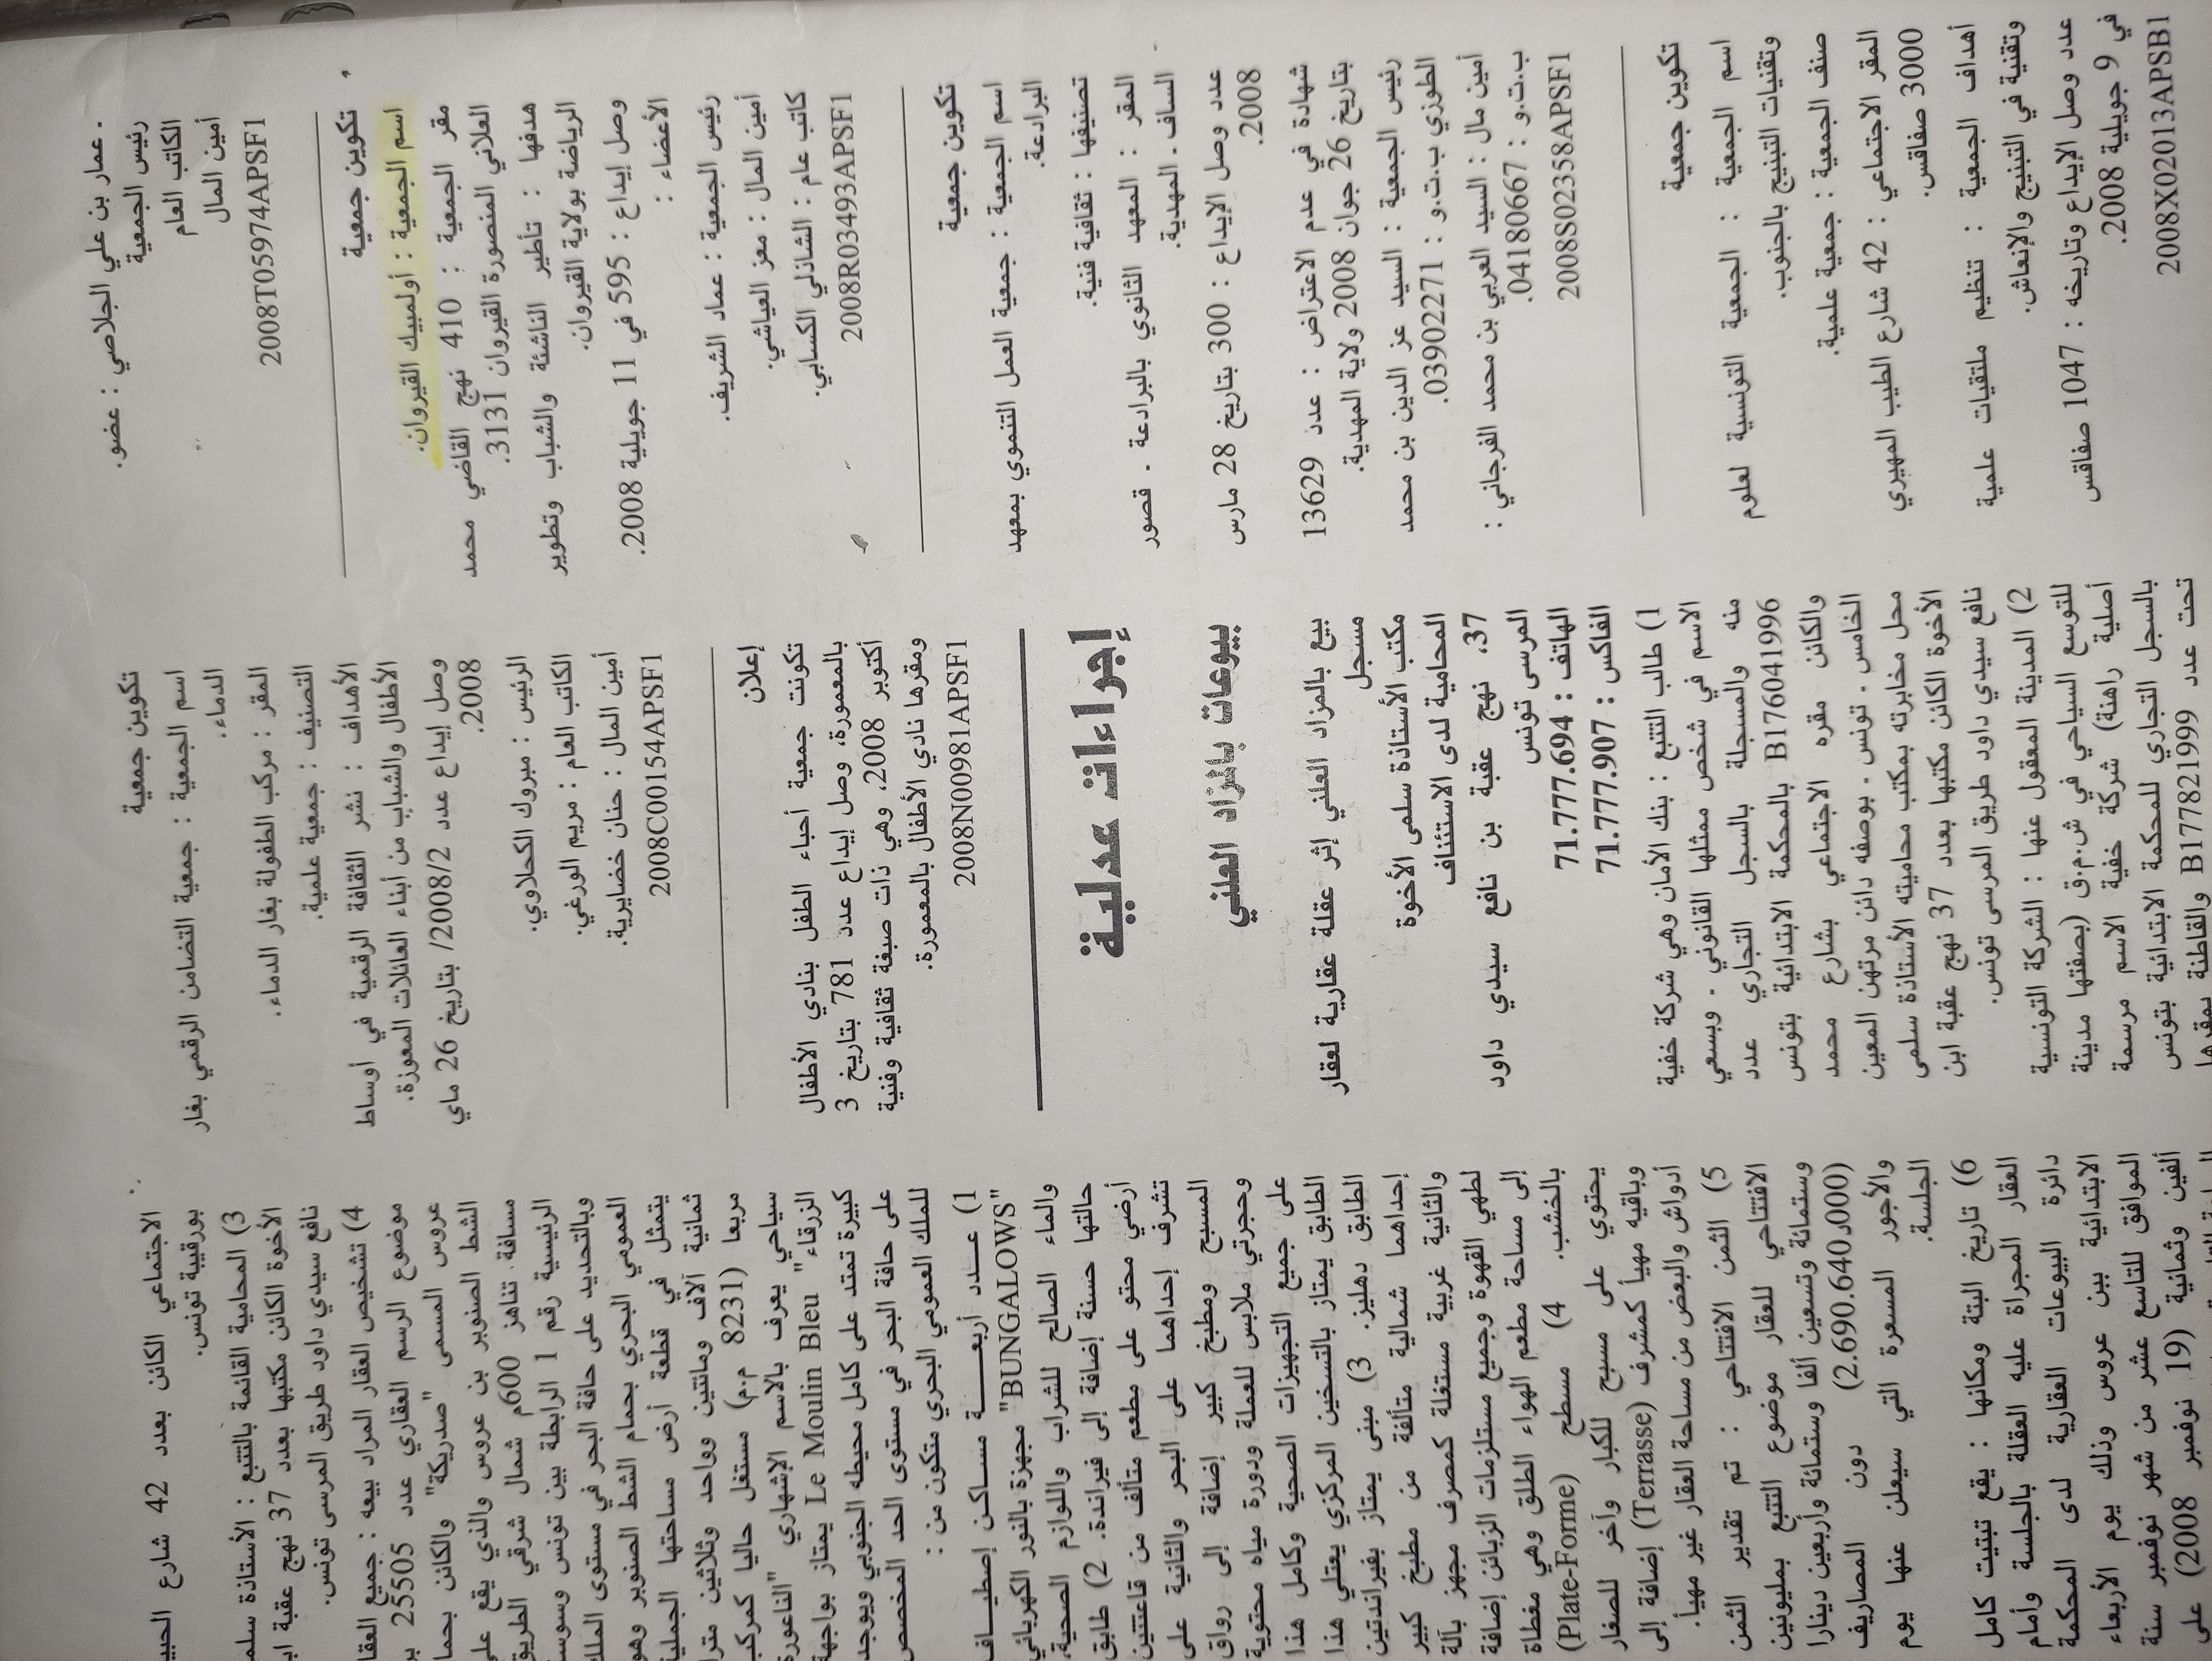 . عمار بن علي الجلاصي : عضو.
رئيس الجمعية
الكاتب العام
أمين المال
2008T05974APSF1
تكوين جمعية
اسم الجمعية : أولمبيك القيروان.
مقر الجمعية : 410 نهج القاضي محمد
العلاني المنصورة القيروان 3131.
هدفها : تأطير الناشئة والشباب وتطوير
الرياضة بولاية القيروان.
وصل إيداع : 595 في 11 جويلية 2008.
الأعضاء :
رئيس الجمعية : عماد الشريف.
أمين المال : معز العياشي.
كاتب عام : الشاذلي الكسابي.
2008R03493APSF1
تكوين جمعية
اسم الجمعية : جمعية العمل التنموي بمعهد
البرادعة.
تصنيفها : ثقافية فنية.
المقر : المعهد الثانوي بالبرادعة . قصور
الساف . المهدية.
عدد وصل الإيداع : 300 بتاريخ 28 مارس
2008.
شهادة في عدم الاعتراض : عدد 13629
بتاريخ 26 جوان 2008 ولاية المهدية.
رئيس الجمعية : السيد عز الدين بن محمد
الطوزي ب.ت.و : 03902271.
أمين مال : السيد العربي بن محمد الفرجاني :
ب.ت.و : 04180667.
2008S02358APSF1
تكوين جمعية
اسم الجمعية : الجمعية التونسية لعلوم
وتقنيات التبنيج بالجنوب.
صنف الجمعية : جمعية علمية.
المقر الاجتماعي : 42 شارع الطيب المهيري
3000 صفاقس.
أهداف الجمعية : تنظيم ملتقيات علمية
وتقنية في التبنيج والإنعاش.
عدد وصل الإيداع وتاريخه : 1047 صفاقس
في 9 جويلية 2008.
2008X02013APSB1
تكوين جمعية
اسم الجمعية : جمعية التضامن الرقمي بغار
الدماء.
المقر : مركب الطفولة بغار الدماء.
التصنيف : جمعية علمية.
الأهداف : نشر الثقافة الرقمية في أوساط
الأطفال والشباب من أبناء العائلات المعوزة.
وصل إيداع عدد 2008/2/ بتاريخ 26 ماي
2008.
الرئيس : مبروك الكحلاوي.
الكاتب العام : مريم الورغي.
أمين المال : حنان خضايرية.
2008C00154APSF1
إعلان
تكونت جمعية أحباء الطفل بنادي الأطفال
بالمعمورة، وصل إيداع عدد 781 بتاريخ 3
أكتوبر 2008، وهي ذات صبغة ثقافية وفنية
ومقرها نادي الأطفال بالمعمورة.
2008N00981APSF1
إجراءات عدلية
بيوعات بالمزاد العلني
بيع بالمزاد العلني إثر عقلة عقارية لعقار
مسجل
مكتب الأستاذة سلمى الأخوة
المحامية لدى الاستئناف
37، نهج عقبة بن نافع سيدي داود
المرسى تونس
الهاتف : 71.777.694
الفاكس : 71.777.907
1) طالب التتبع : بنك الأمان وهي شركة خفية
الاسم في شخص ممثلها القانوني . وبسعي
منه والمسجلة بالسجل التجاري عدد
B176041996 بالمحكمة الابتدائية بتونس
والكائن مقره الاجتماعي بشارع محمد
الخامس . تونس . بوصفه دائن مرتهن المعين
محل مخابرته بمكتب محاميته الأستاذة سلمى
الأخوة الكائن مكتبها بعدد 37 نهج عقبة ابن
نافع سيدي داود طريق المرسى تونس.
2) المدينة المعقول عنها : الشركة التونسية
للتوسع السياحي في ش.م.ق (بصفتها مدينة
أصلية راهنة) شركة خفية الاسم مرسمة
بالسجل التجاري للمحكمة الابتدائية بتونس
تحت عدد B177821999 والقاطنة بمقرها
الاجتماعي الكائن بعدد 42 شارع الحبيب
بورقيبة تونس.
3) المحامية القائمة بالتتبع : الأستاذة سلمى
الأخوة الكائن مكتبها بعدد 37 نهج عقبة ابن
نافع سيدي داود طريق المرسى تونس.
4) تشخيص العقار المراد بيعه : جميع العقار
موضوع الرسم العقاري عدد 25505 بن
عروس المسمى "صدريكة" والكائن بحمام
الشط الصنوبر بن عروس والذي يقع على
مسافة تناهز 600م شمال شرقي الطريق
الرئيسية رقم 1 الرابطة بين تونس وسوسة
وبالتحديد على حافة البحر في مستوى الملك
العمومي البحري بحمام الشط الصنوبر وهو
يتمثل في قطعة أرض مساحتها الجملية
ثمانية آلاف ومائتين وواحد وثلاثين مترا
مربعا (8231 م.م) مستغل حاليا كمركب
سياحي يعرف بالاسم الإشهاري "الناعورة
الزرقاء" Le Moulin Bleu يمتاز بواجهة
كبيرة تمتد على كامل محيطه الجنوبي ويوجد
على حافة البحر في مستوى الحد المخصص
للملك العمومي البحري متكون من :
1) عدد أربعة مساكن إصطياف
"BUNGALOWS" مجهزة بالنور الكهربائي
والماء الصالح للشراب واللوازم الصحية،
حالتها حسنة إضافة إلى فيراندة. 2) طابق
أرضي محتو على مطعم متألف من قاعتين
تشرف إحداهما على البحر والثانية على
المسبح ومطبخ كبير إضافة إلى رواق
وحجرتي ملابس للعملة ودورة مياه محتوية
على جميع التجهيزات الصحية وكامل هذا
الطابق يمتاز بالتسخين المركزي يعتلي هذا
الطابق دهليز. 3) مبنى يمتاز بفيراندتين
إحداهما شمالية متألفة من مطبخ كبير
والثانية غربية مستغلة كمصرف مجهز بآلة
لطهي القهوة وجميع مستلزمات الزبائن إضافة
إلى مساحة مطعم الهواء الطلق وهي مغطاة
بالخشب. 4) مسطح (Plate-Forme)
يحتوي على مسبح للكبار وآخر للصغار
وباقيه مهيأ كمشرف (Terrasse) إضافة إلى
أدواش والبعض من مساحة العقار غير مهيأ.
5) الثمن الافتتاحي : تم تقدير الثمن
الافتتاحي للعقار موضوع التتبع بمليونين
وستمائة وتسعين ألفا وستمائة وأربعين دينارا
(2.690.640د000) دون المصاريف
والأجور المسعرة التي سيعلن عنها يوم
الجلسة.
6) تاريخ البتة ومكانها : يقع تبتيت كامل
العقار المجراة عليه العقلة بالجلسة وأمام
دائرة البيوعات العقارية لدى المحكمة
الابتدائية بين عروس وذلك يوم الأربعاء
الموافق للتاسع عشر من شهر نوفمبر سنة
ألفين وثمانية (19 نوفمبر 2008) على